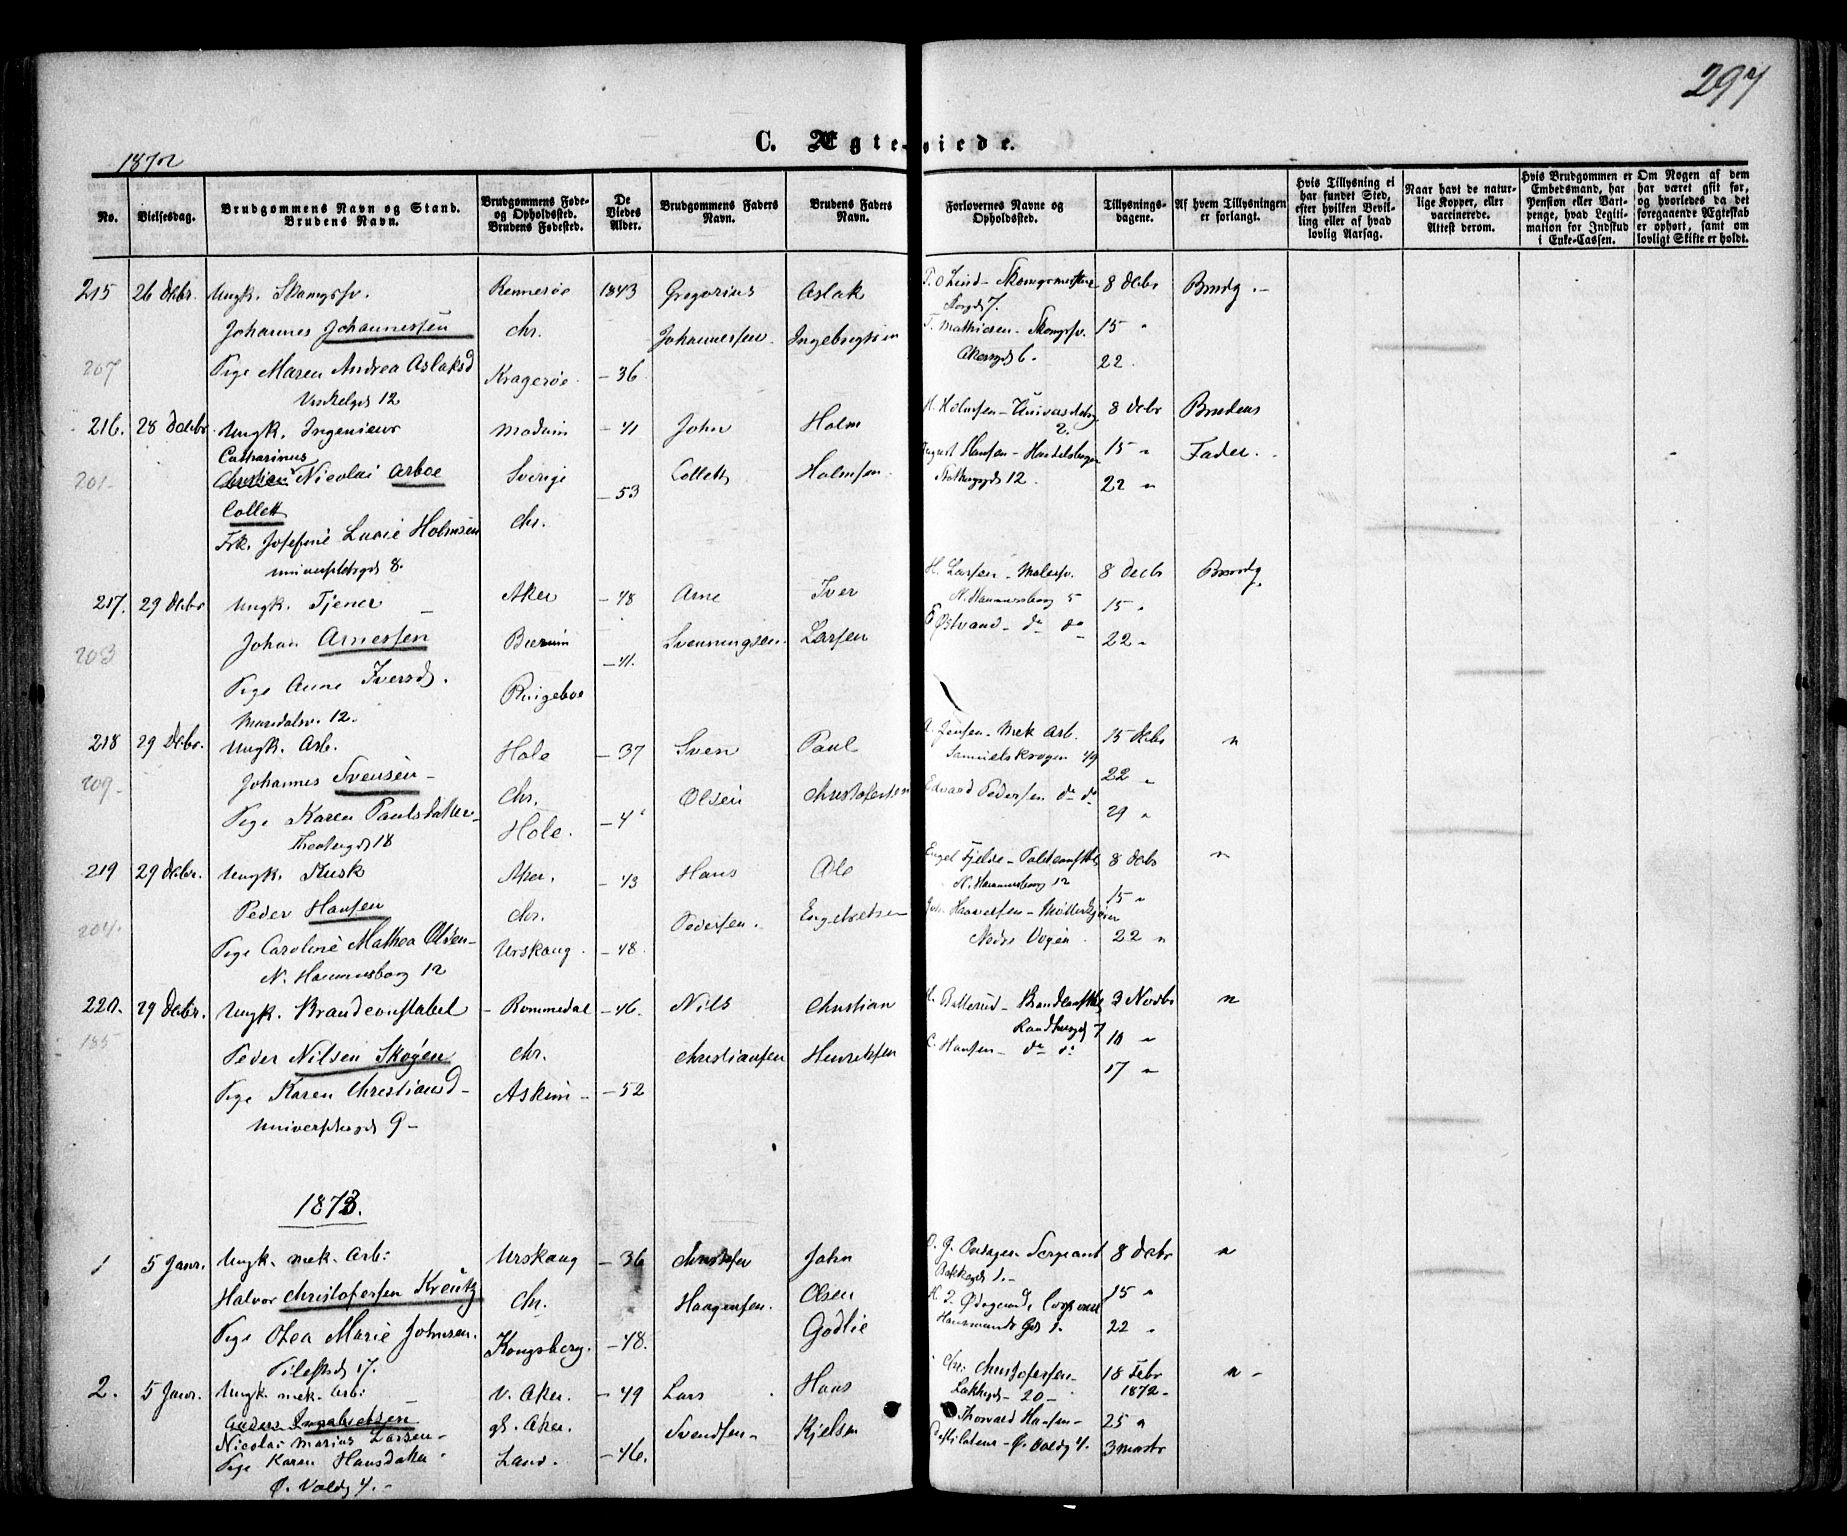 297
C. Ægteviede.
1872
No.
Vielsesdag.
Brudgommens Navn og Stand.
Brudens Navn.
Brudgommens Føde-
og Opholdssted.
Brudens Fødested.
De
Viedes
Alder.
Brudgommens Faders
Navn.
Brudens Faders
Navn.
Forlovernes Navne og
Opholdssted.
Tillysnings-
dagene.
Af hvem Tillysningen
er forlangt.
Hvis Tillysning ei
har fundet Sted,
efter hvilken Bevil-
ling eller af hvad
lovlig Aarsag.
Naar havt de natur-
lige Kopper, eller
vaccinerede.
Attest derom.
Hvis Brudgommen er
Embedsmand, har
Pension eller Vart-
penge, hvad Legiti-
mation for Indskud
i Enke-Cassen.
Om Nogen af dem
har været gift før,
og hvorledes da det
foregaaende Ægteskab
er ophørt, samt om
lovligt Skifte er holdt.
215 26 Decbr. Ungk. Skomgsv. Rennesøe 1843 Gregorius Aslak 8 Decbr Brudg.
Johannes Johannessen Chr. Johannessen. Ingebrigtsen 15 "
207 Pige Maren Andrea Aslaksd Kragerøe. -36 22
12
216. 28 Decbr. Ungk. Ingenieur Modum -41 John Holm H. Holmsen 8 Decbr Brudens
Catharinus
201 Christian Nicolai Arboe Sverige -53 Collett Holmsen August Hansen 15 " Fader.
Collett Chr. 12. 22 "
Frk. Josefine Lucie Holmsen
Universitetsgd 8.
217. 29 Decbr Ungk. Tjener Aker -48 Arne Iver H. Larsen - Malersv. 8 Decbr Brudg.
N. Hammersborg 5
203 Johan Arnessen Bærum -41. Svenningsen. Larsen E Østvand - do do 15 "
Pige Anne Iversd. Ringeboe 22 "
Maridalsv. 12.
218 29 Decbr. Ungk. Arb. Hole -37 Sven Paul A. Jensen - Mek Arb. 15 Decbr "
Samuelskrogen 49
209 Johannes Svensen Chr. Olsen Christofersen Edvard Pedersen do do 22 "
Pige Karen Paulsdatter Hole. 29 "
Theatergd 18
219 29 Decbr. Ungk. Kusk Aker. -43 Hans Ole Engel Fjelde 8 Decbr "
N. Hammersborg 12
204. Peder Hansen Chr. Pedersen. Engebretsen 15 "
Pige Caroline Mathea Olsen Urskoug. -48. Nedre Vogen. 22 "
N. Hammersborg 12
220. 29 Decbr. Ungk. Brandconstabel Rommedal -46. Nils Christian 3 Novbr "
185 Peder Nilsen Skogen Chr. Christiansen Henriksen C. Hansen - do do 10 "
Pige Karen Christiansd Askim -52 17 "
Universitetsgd 9
1873.
1 5 Janr. Ungk. mek. Arb: Urskoug -36 Christofer John Sergeant 8 Decbr "
Halvor Christofersen Kreutz Chr. Haagensen. Olsen 15 "
Pige Olea Marie Johnsen. Kongsberg. -48. Godlie 22 "
Pilestrd 17.
2. 5 Janr. Ungk. mek. Arb: V. Aker. -49 Lars Hans Chr: Christofersen 18 Febr "
20 1872
Anders Ingebretsen gl. Aker. Svendsen Kjelsen Thorvald Hansen 25 "
Nicolai Marius Larsen
Pige Karen Hansdatter Land. -46. Ø. Voldg 4. 3 Marts
Ø. Voldg 4.